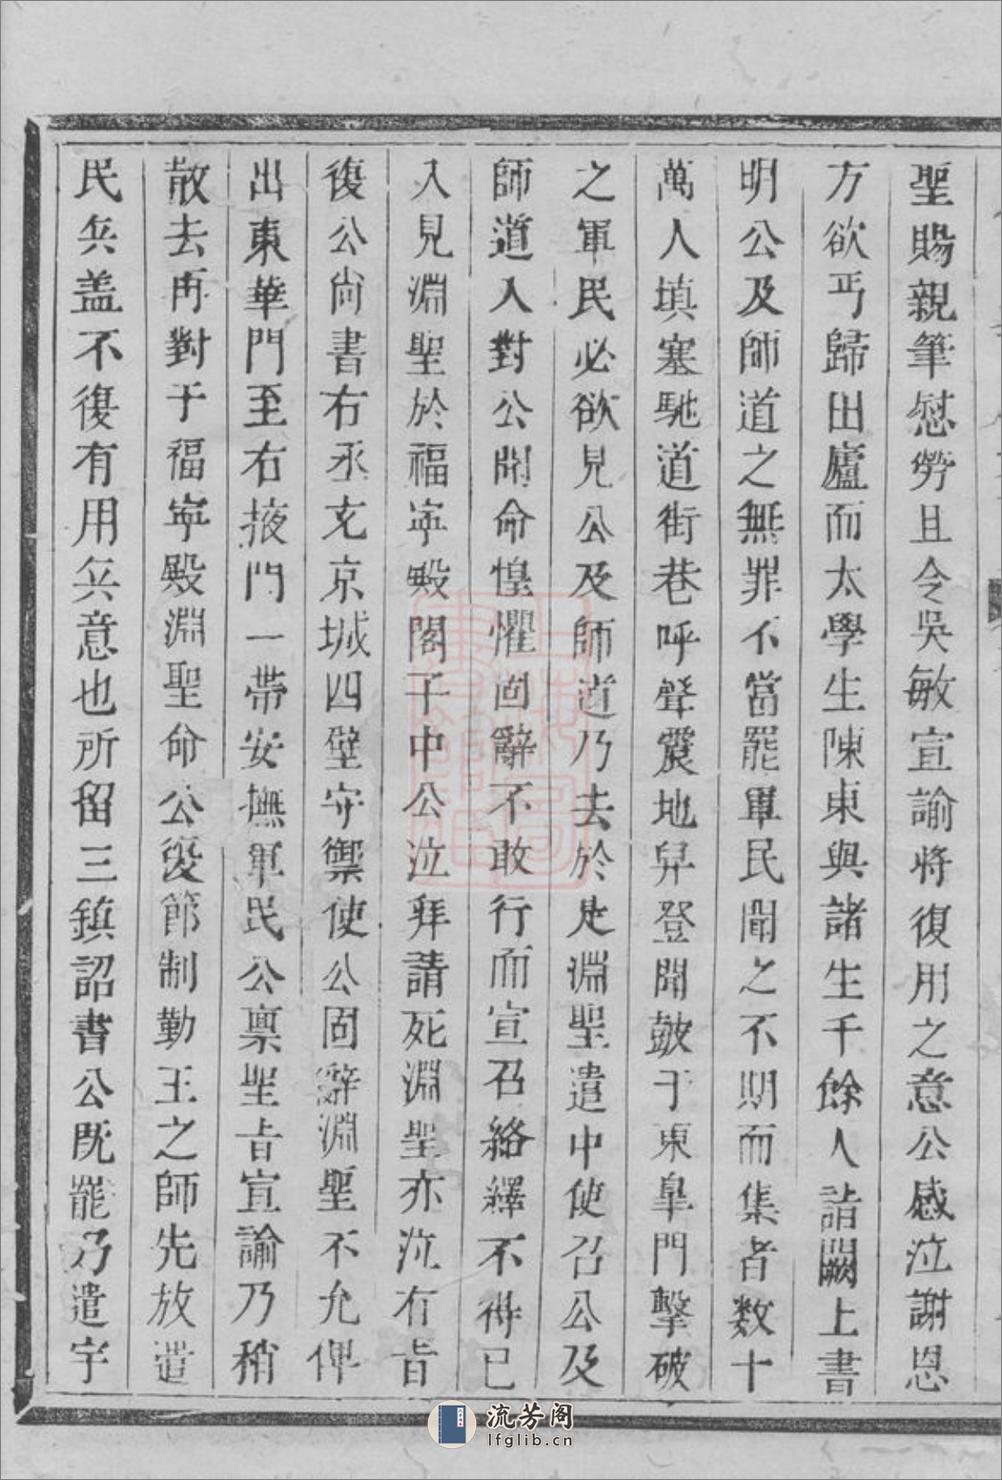 聖賜親筆慰勞且令吳敏宣諭將復用之意公感泣謝恩
方欲丐歸田廬而太學生陳東與諸生千餘人詣闕上書
明公及師道之無罪不當罷軍民聞之不期而集者数十
萬人填塞馳道街巷呼聲震地舁登聞鼓于東臯門擊破
之軍民必欲見公及師道乃去於是淵聖遣中使召公及
師道入對公聞命惶懼固辭不敢行而宣召絡繹不得已
入見淵聖於福寧殿閣子中公泣拜請死淵聖亦泣有旨
復公尚書右丞充京城四壁守禦使公固辭淵聖不允俾
出東華門至右掖門一帶安撫軍民公稟聖旨宣諭乃稍
散去再對于福寧殿淵聖命公復節制勤王之師先放遣
民兵盖不復有用兵意也所留三鎮詔書公既罷乃遣宇
流芳阁
lfglib.cn